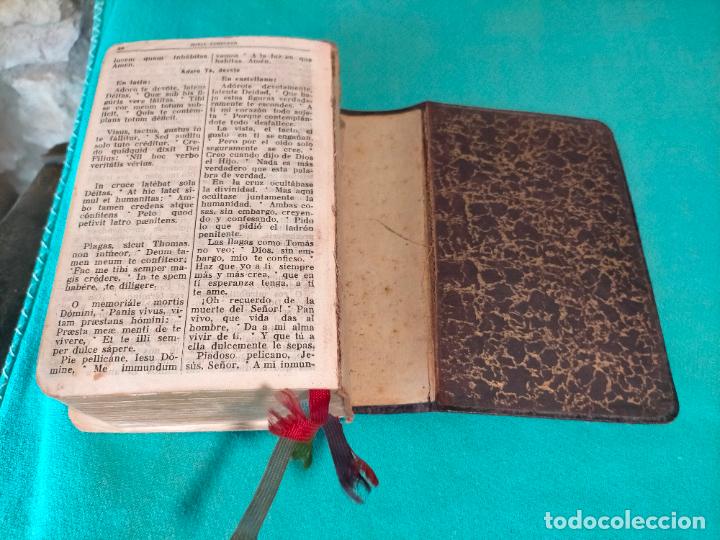 lucem quam inhábitas
Amen.
Adoro Te, devote
En latín:
Adóro te devóte, latens
Déitas, * Quæ sub his fi-
gúris vere látitas. * Tibi
se cor meum totum súbji-
cit, * Quia te contém-
plans totum déficit.
Visus, tactus, gustus in
te fállitur, * Sed audítu
solo tuto créditur. * Cre-
do quidquid dixit Dei
Fílius; * Nil hoc verbo
veritátis vérius.
In cruce latébat sola
Déitas, * At hic latet si-
mul et humanitas; * Am-
bo tamen credens atque
cónfitens * Peto quod
petívit latro pœnitens.
Plagas, sicut Thomas,
non intúeor, * Deum ta-
men meum te confíteor;
* Fac me tibi semper ma-
gis crédere, * In te spem
habére, te diligere.
O memoriále mortis
Dómini, * Panis vivus, vi-
tam præstans hómini: *
Præsta meæ menti de te
vívere, * Et te illi sem-
per dulce sápere.
Pie pellicáne, Iesu Dó-
mine, * Me immundum
vamen * A la luz en que
habitas Amén.
En castellano:
Adórote devotamente,
latente Deidad, * Que ba-
jo estas figuras verdade-
ramente te escondes. * A
ti mi corazón todo suje-
ta * Porque contemplán-
dote todo desfallece.
La vista, el tacto, el
gusto en ti se engañan,
* Pero por el oído solo
seguramente se cree. *
Creo cuando dijo de Dios
el Hijo. * Nada es más
verdadero que esta pala-
bra de verdad.
En la cruz ocultábase
la divinidad. * Mas aquí
ocúltase juntamente la
humanidad. * Ambas co-
sas, sin embargo, creyen-
do y confesando, * Pido
lo que pidió el ladrón
penitente.
Las llagas como Tomás
no veo; * Dios, sin em-
bargo, mío te confieso. *
Haz que yo a ti siempre
más y más crea, * que en
ti esperanza tenga, a ti
te ame.
¡Oh recuerdo de la
muerte del Señor! * Pan
vivo, que vida das al
hombre, * Da a mi alma
vivir de ti. * Y que tú a
ella dulcemente le sepas.
Piadoso pelícano, Je-
sús, Señor, * A mí inmun-
todocoleccion